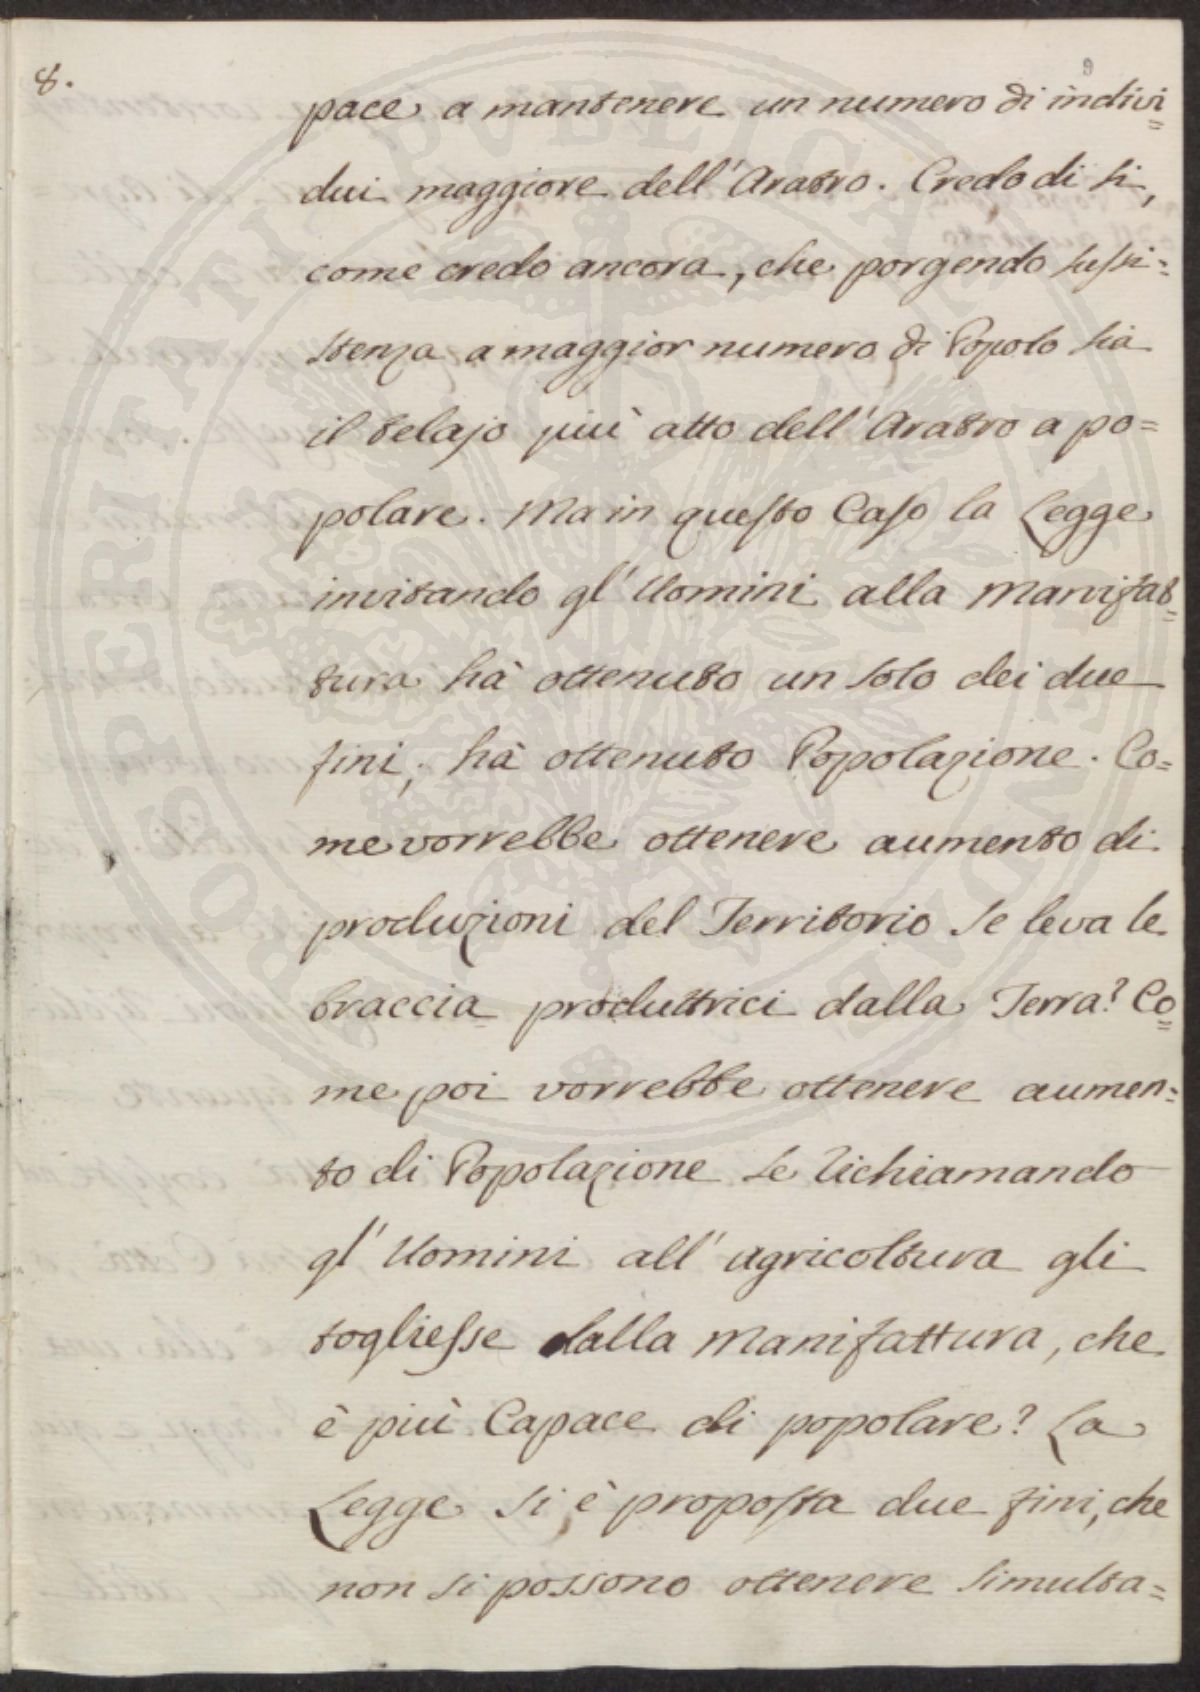 8.
9
pace a mantenere un numero di indivi=
dui maggiore dell' Aratro. Credo di si,
come credo ancora, che porgendo sussi=
stenza a maggior numero di Popolo sia
il telajo più atto dell' Aratro a po=
polare. Ma in questo Caso la Legge
invitando gl' Uomini alla Manifat=
tura hà ottenuto un solo dei due
fini; hà ottenuto Popolazione. Co=
me vorrebbe ottenere aumento di
produzioni del Territorio se leva le
braccia produttrici dalla Terra? Co=
me poi vorrebbe ottenere aumen=
to di Popolazione se richiamando
gl' Uomini all' agricoltura gli
togliesse dalla Manifattura, che
è più Capace di popolare? La
Legge si è proposta due fini, che
non si possono ottenere simulta=
PROSPERITATI PUBLICAE AUGENDAE